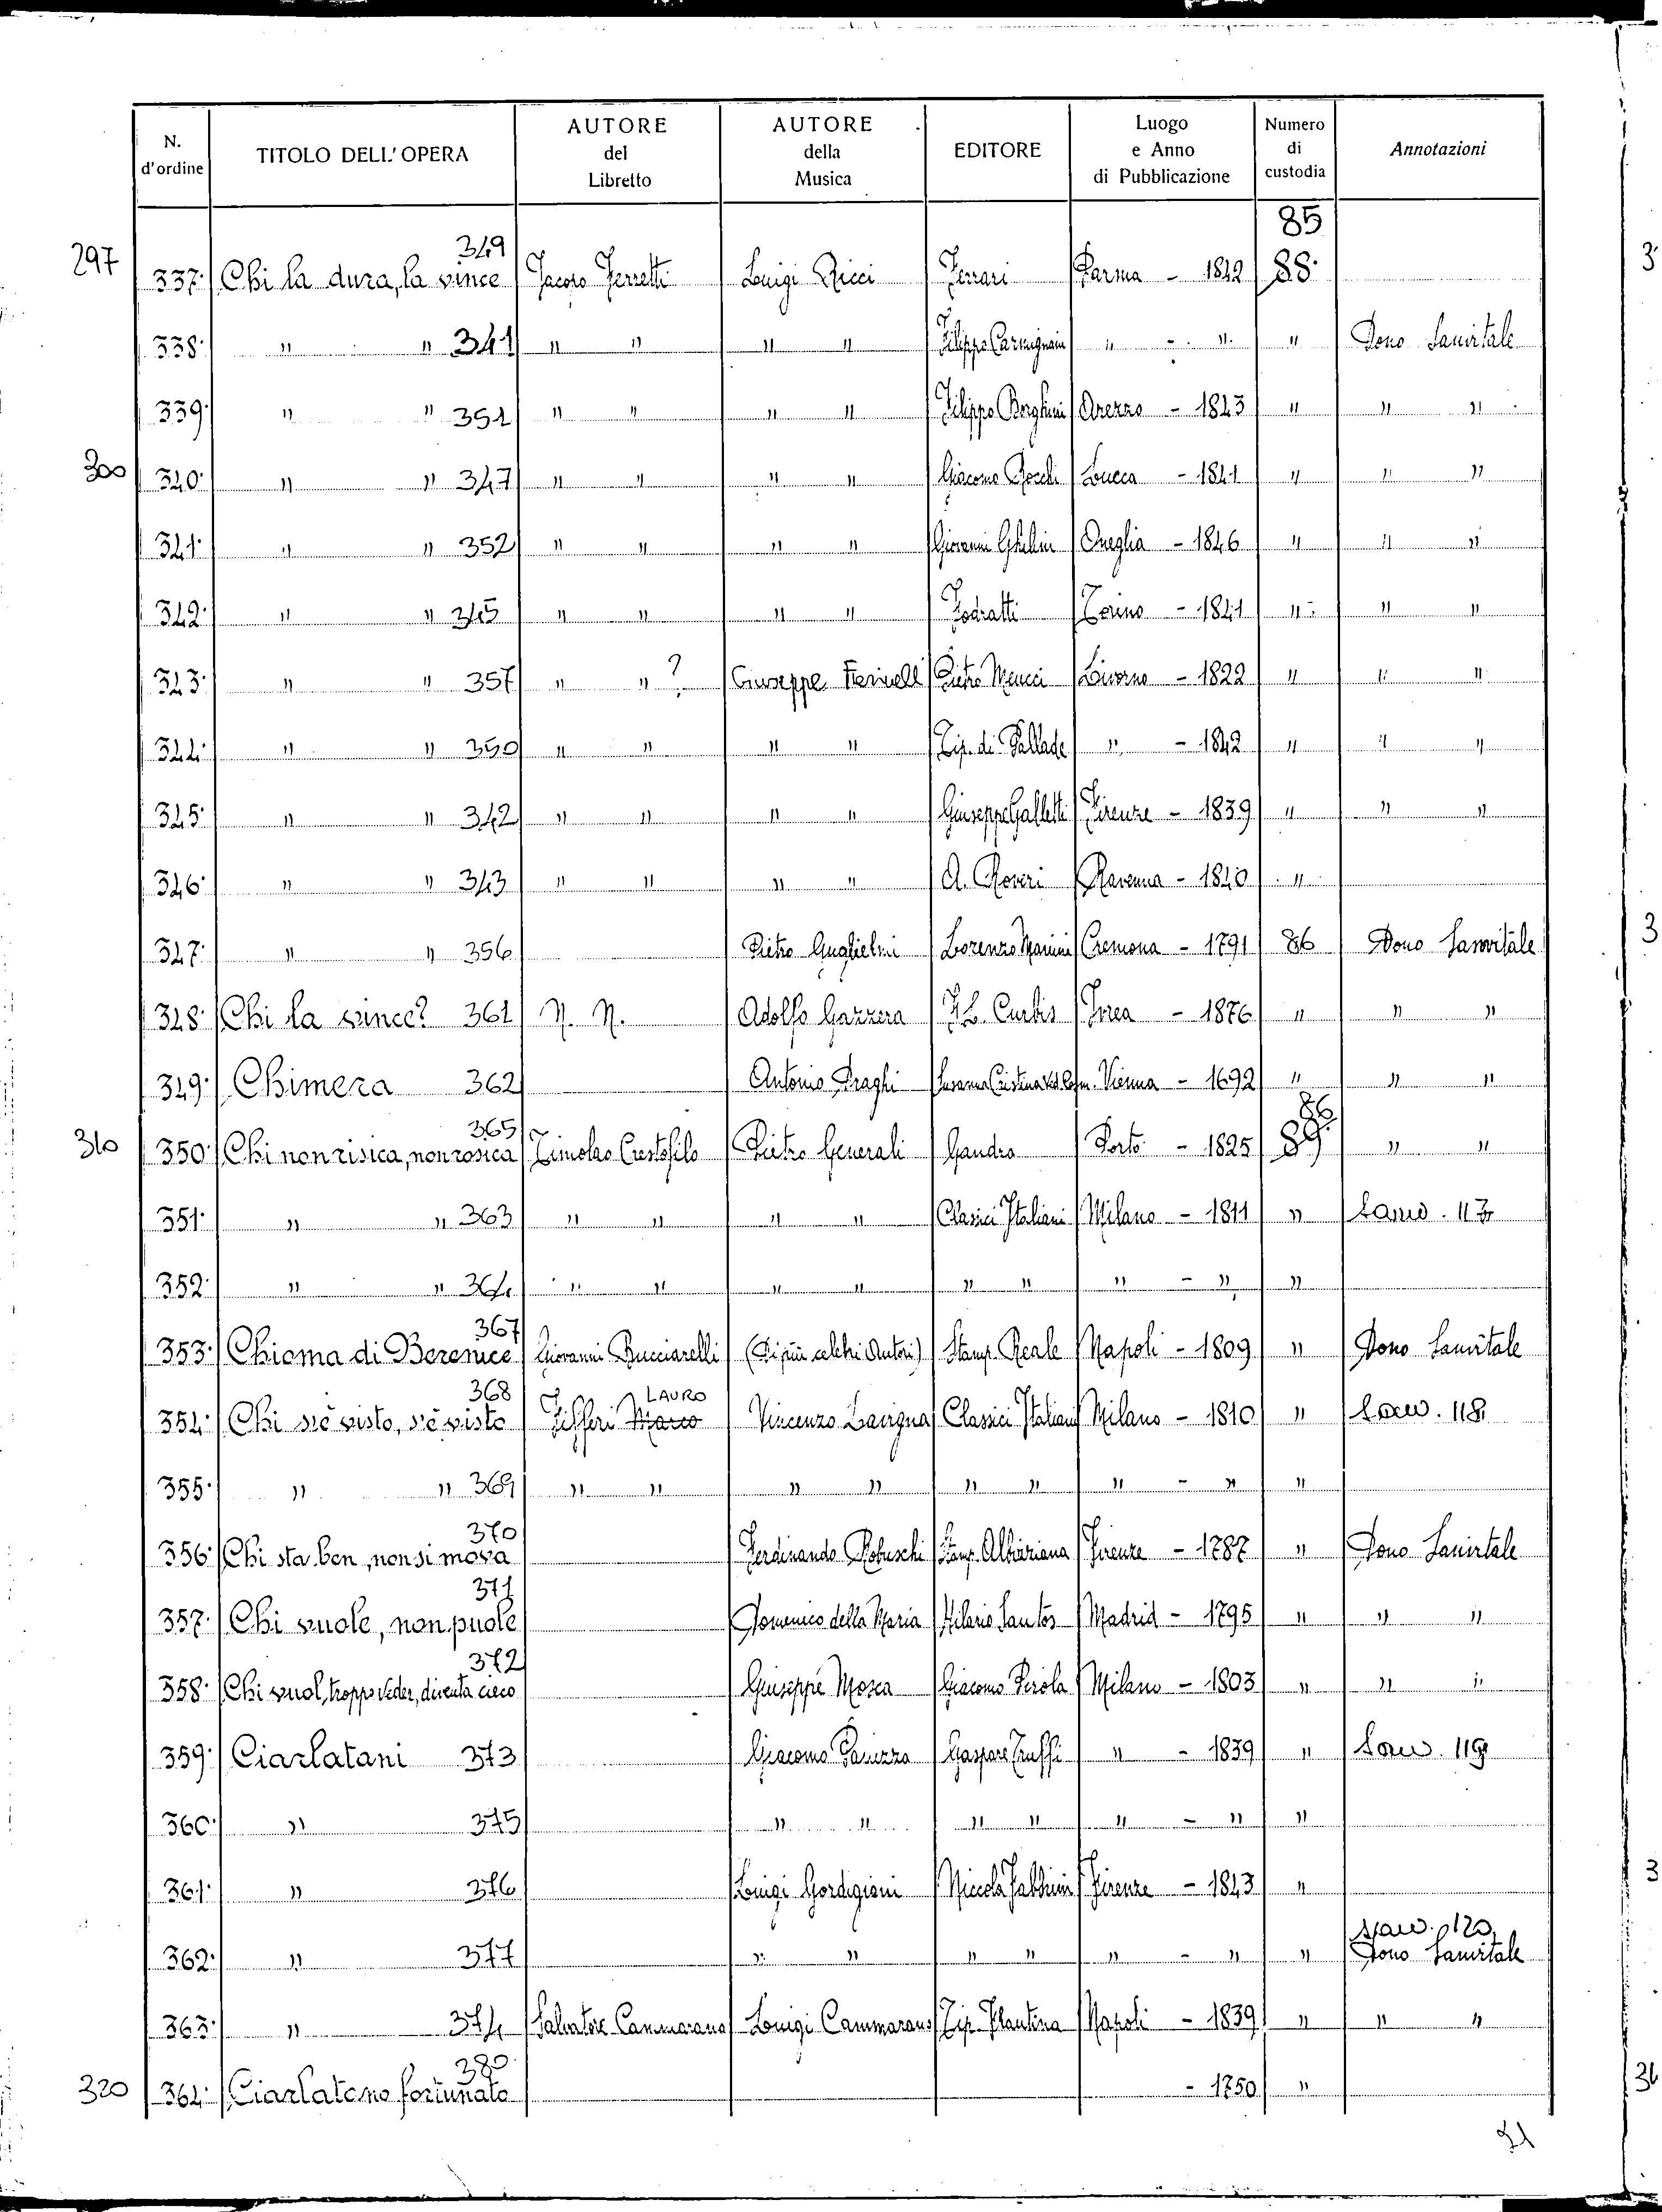 N. d'ordine | TITOLO DELL'OPERA | AUTORE del Libretto | AUTORE della Musica | EDITORE | Luogo e Anno di Pubblicazione | Numero di custodia | Annotazioni
85
297 337 Chi la dura, la vince 349 Jacopo Ferretti Luigi Ricci Ferrari Parma - 1842 88
338 " " 341 " " " " Filippo Carmignani " - " " Dono Sanvitale
339 " " 351 " " " " Filippo Borghini Arezzo - 1843 " " "
300 340 " " 347 " " " " Giacomo Rocchi Lucca - 1841 " " "
341 " " 352 " " " " Giovanni Ghilini Oneglia - 1846 " " "
342 " " 345 " " " " Fodratti Torino - 1841 " " "
343 " " 357 " " ? Giuseppe Farinelli Pietro Meucci Livorno - 1822 " " "
344 " " 350 " " " " Tip. di Pallade " - 1842 " " "
345 " " 342 " " " " Giuseppe Galletti Firenze - 1839 " " "
346 " " 343 " " " " A. Roveri Ravenna - 1840 "
347 " " 356 Pietro Guglielmi Lorenzo Manini Cremona - 1791 86 Dono Sanvitale
348 Chi la vince? 361 N. N. Adolfo Gazzera F. L. Curbis Ivrea - 1876 " " "
349 Chimera 362 Antonio Draghi Susanna Cristina Vienna - 1692 " " "
310 350 Chi non risica, non rosica 365 Timolao Crestofilo Pietro Generali Gandra Porto - 1825 86 89 " "
351 " " 363 " " " " Classici Italiani Milano - 1811 " Sanv. 117
352 " " 364 " " " " " " " - " "
353 Chioma di Berenice 367 Giovanni Bucciarelli (Di più celebri Autori) Stamp. Reale Napoli - 1809 " Dono Sanvitale
354 Chi s'è visto, s'è visto 368 Fifferi Marco LAURO Vincenzo Lavigna Classici Italiani Milano - 1810 " Sanv. 118
355 " " 369 " " " " " " " - " "
356 Chi sta ben, non si mova 370 Ferdinando Robuschi Stamp. Albizziana Firenze - 1787 " Dono Sanvitale
357 Chi vuole, non puole 371 Domenico della Maria Hilario Santos Madrid - 1795 " " "
358 Chi vuol troppo veder, diventa cieco 372 Giuseppe Mosca Giacomo Pirola Milano - 1803 " " "
359 Ciarlatani 373 Giacomo Panizza Gaspare Truffi " - 1839 " Sanv. 119
360 " 375 " " " " " - " "
361 " 376 Luigi Gordigiani Niccola Fabbrini Firenze - 1843 "
362 " 377 " " " " " - " " Sanv. 120 Dono Sanvitale
363 " 374 Salvatore Cammarano Luigi Cammarano Tip. Plautina Napoli - 1839 " " "
320 364 Ciarlatano fortunato 380 - 1750 "
21